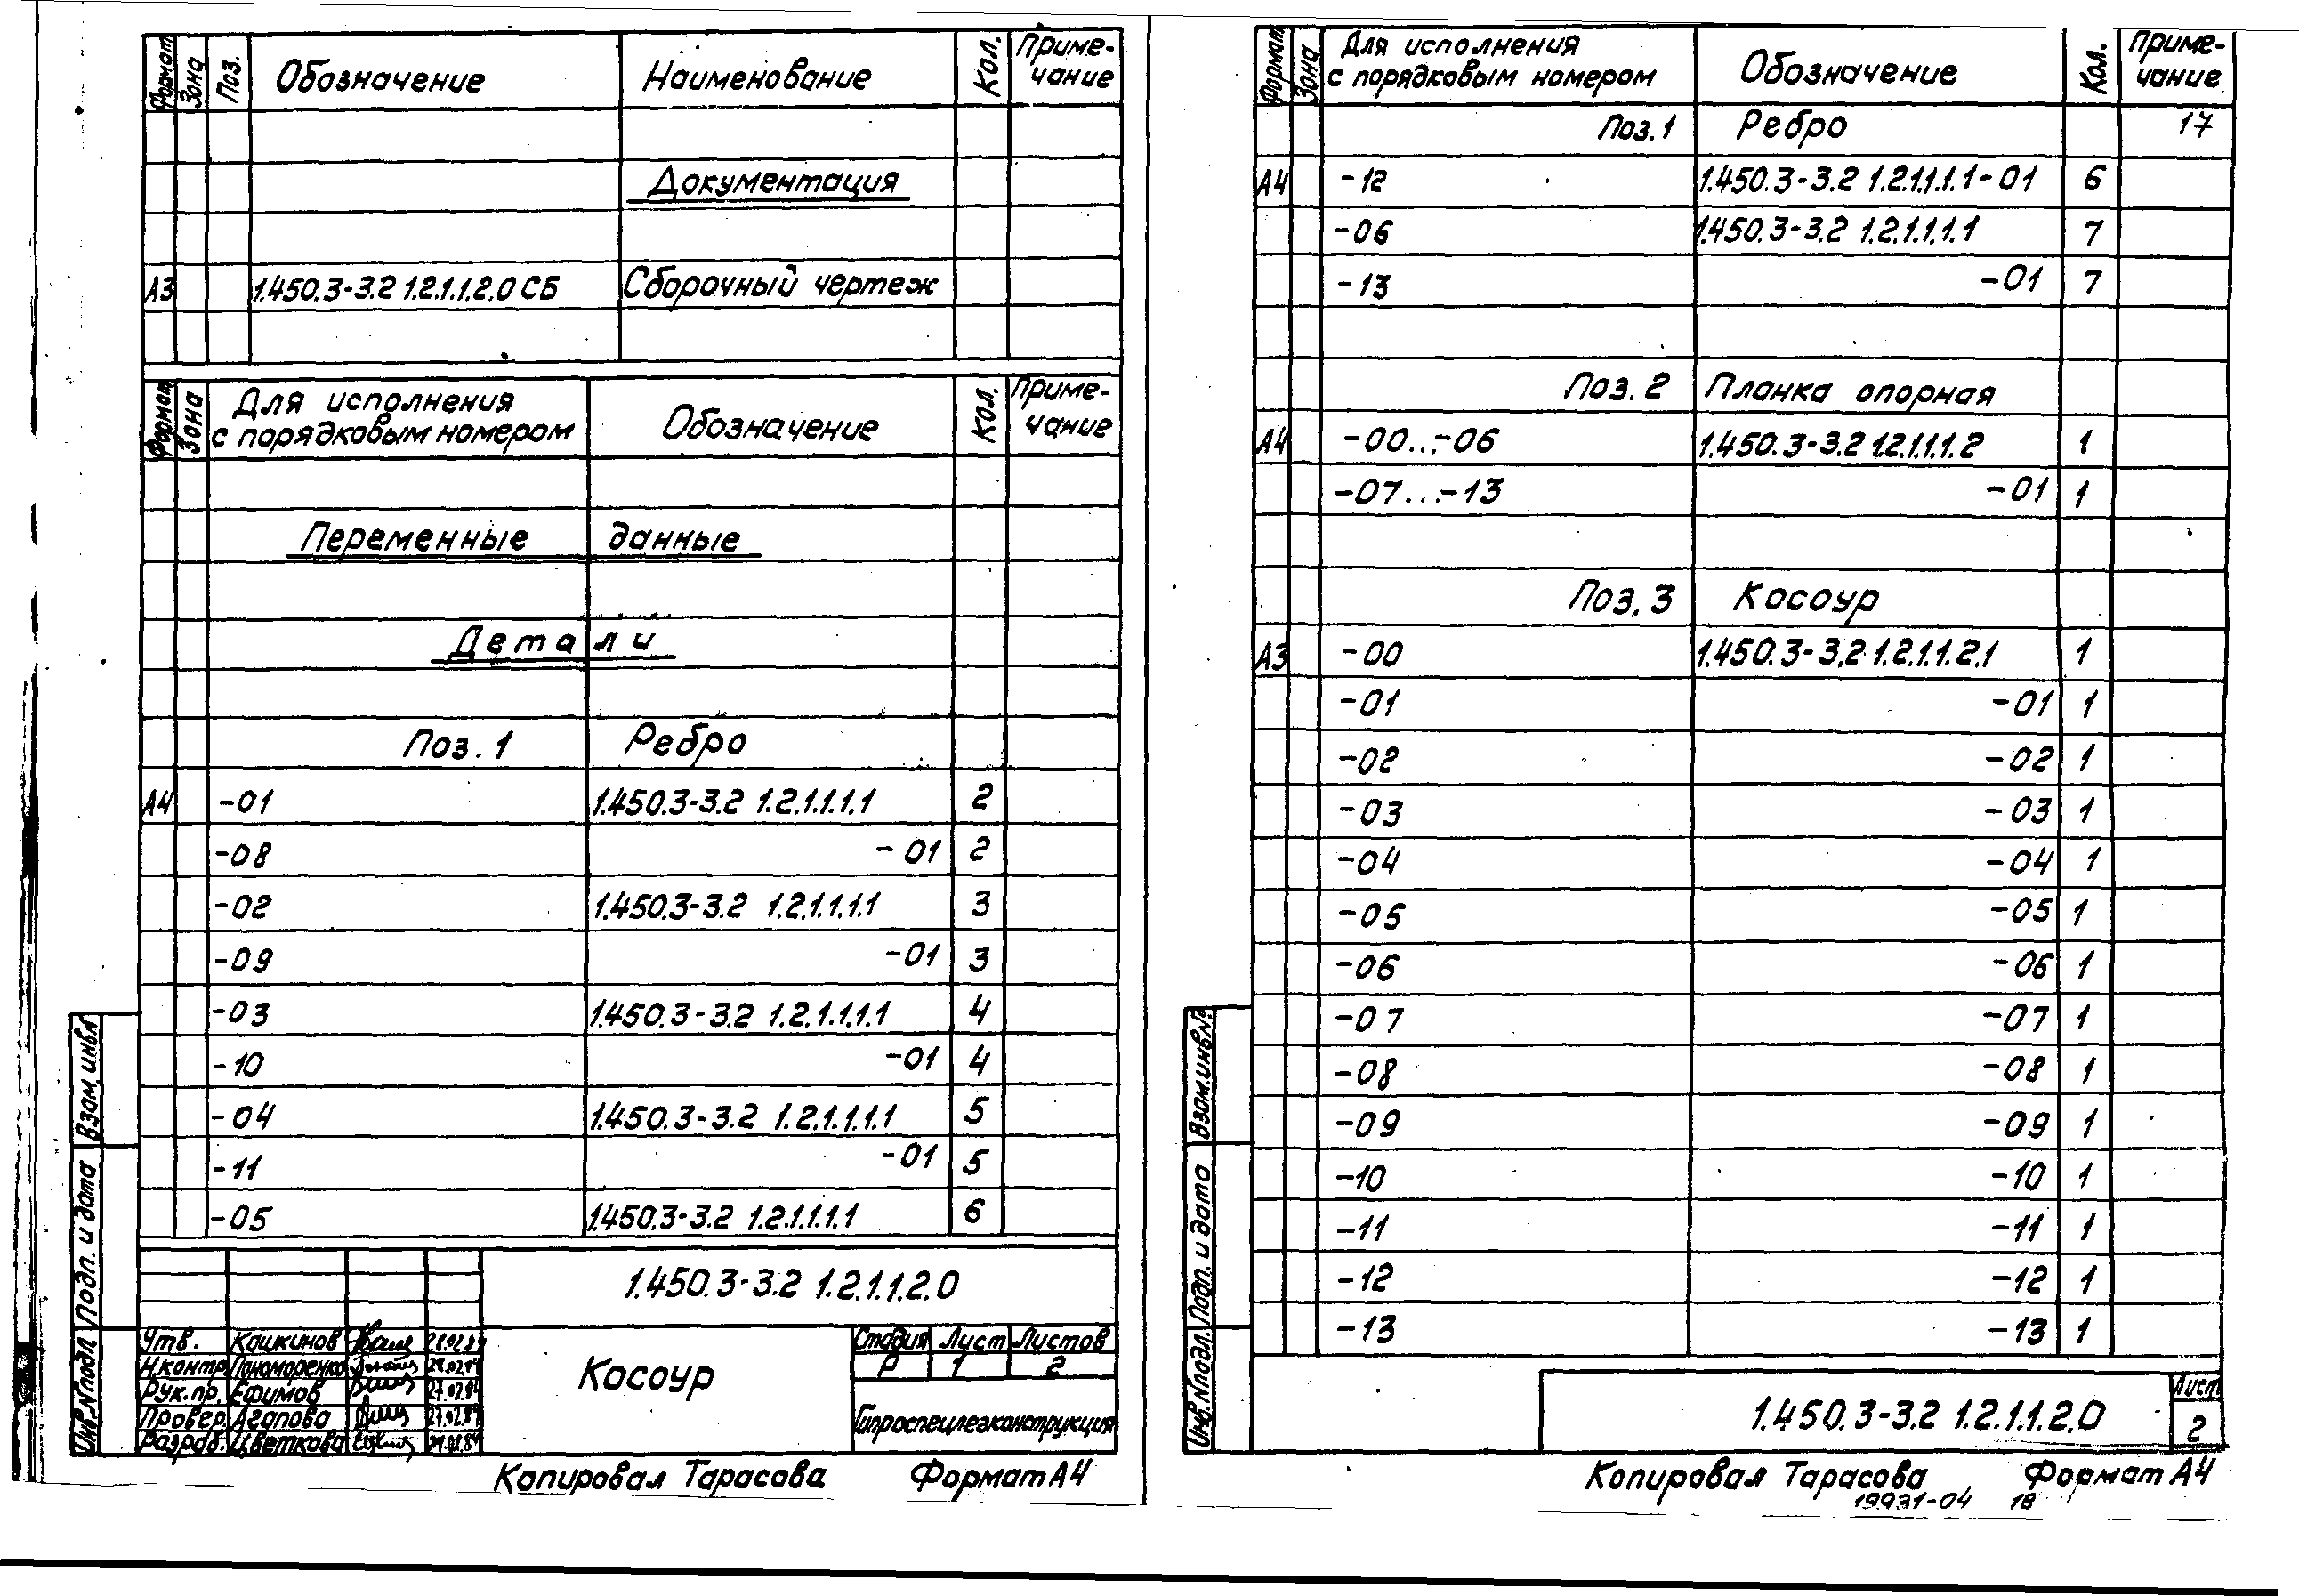 Формат Зона Поз. Обозначение Наименование Кол. Приме-
чание
Документация
А3 1.450.3-3.2 1.2.1.1.2.0 СБ Сборочный чертеж
Формат Зона Для исполнения
с порядковым номером Обозначение Кол. Приме-
чание
Переменные данные
Детали
Поз. 1 Ребро
А4 -01 1.450.3-3.2 1.2.1.1.1.1 2
-08 -01 2
-02 1.450.3-3.2 1.2.1.1.1.1 3
-09 -01 3
-03 1.450.3-3.2 1.2.1.1.1.1 4
-10 -01 4
-04 1.450.3-3.2 1.2.1.1.1.1 5
-11 -01 5
-05 1.450.3-3.2 1.2.1.1.1.1 6
Взам. инв.
Подп. и дата
Инв. N подл.
1.450.3-3.2 1.2.1.1.2.0
Утв. Кашкинов 21.02.84
Н.контр. Пономаренко 21.02.84
Рук. пр. Ефимов 27.02.84
Провер. Агапова 27.02.84
Разраб. Цветкова 21.02.84
Косоур
Стадия Лист Листов
Р 1 2
Гипроспецлегконструкция
Копировал Тарасова Формат А4
Формат Зона Для исполнения
с порядковым номером Обозначение Кол. Приме-
чание
Поз. 1 Ребро 17
А4 -12 1.450.3-3.2 1.2.1.1.1.1-01 6
-06 1.450.3-3.2 1.2.1.1.1.1 7
-13 -01 7
Поз. 2 Планка опорная
А4 -00...-06 1.450.3-3.2 1.2.1.1.1.2 1
-07...-13 -01 1
Поз. 3 Косоур
А3 -00 1.450.3-3.2 1.2.1.1.2.1 1
-01 -01 1
-02 -02 1
-03 -03 1
-04 -04 1
-05 -05 1
-06 -06 1
-07 -07 1
-08 -08 1
-09 -09 1
-10 -10 1
-11 -11 1
-12 -12 1
-13 -13 1
Взам. инв. №
Подп. и дата
Инв. N подл.
1.450.3-3.2 1.2.1.1.2.0
Лист
2
Копировал Тарасова Формат А4
19931-04 18